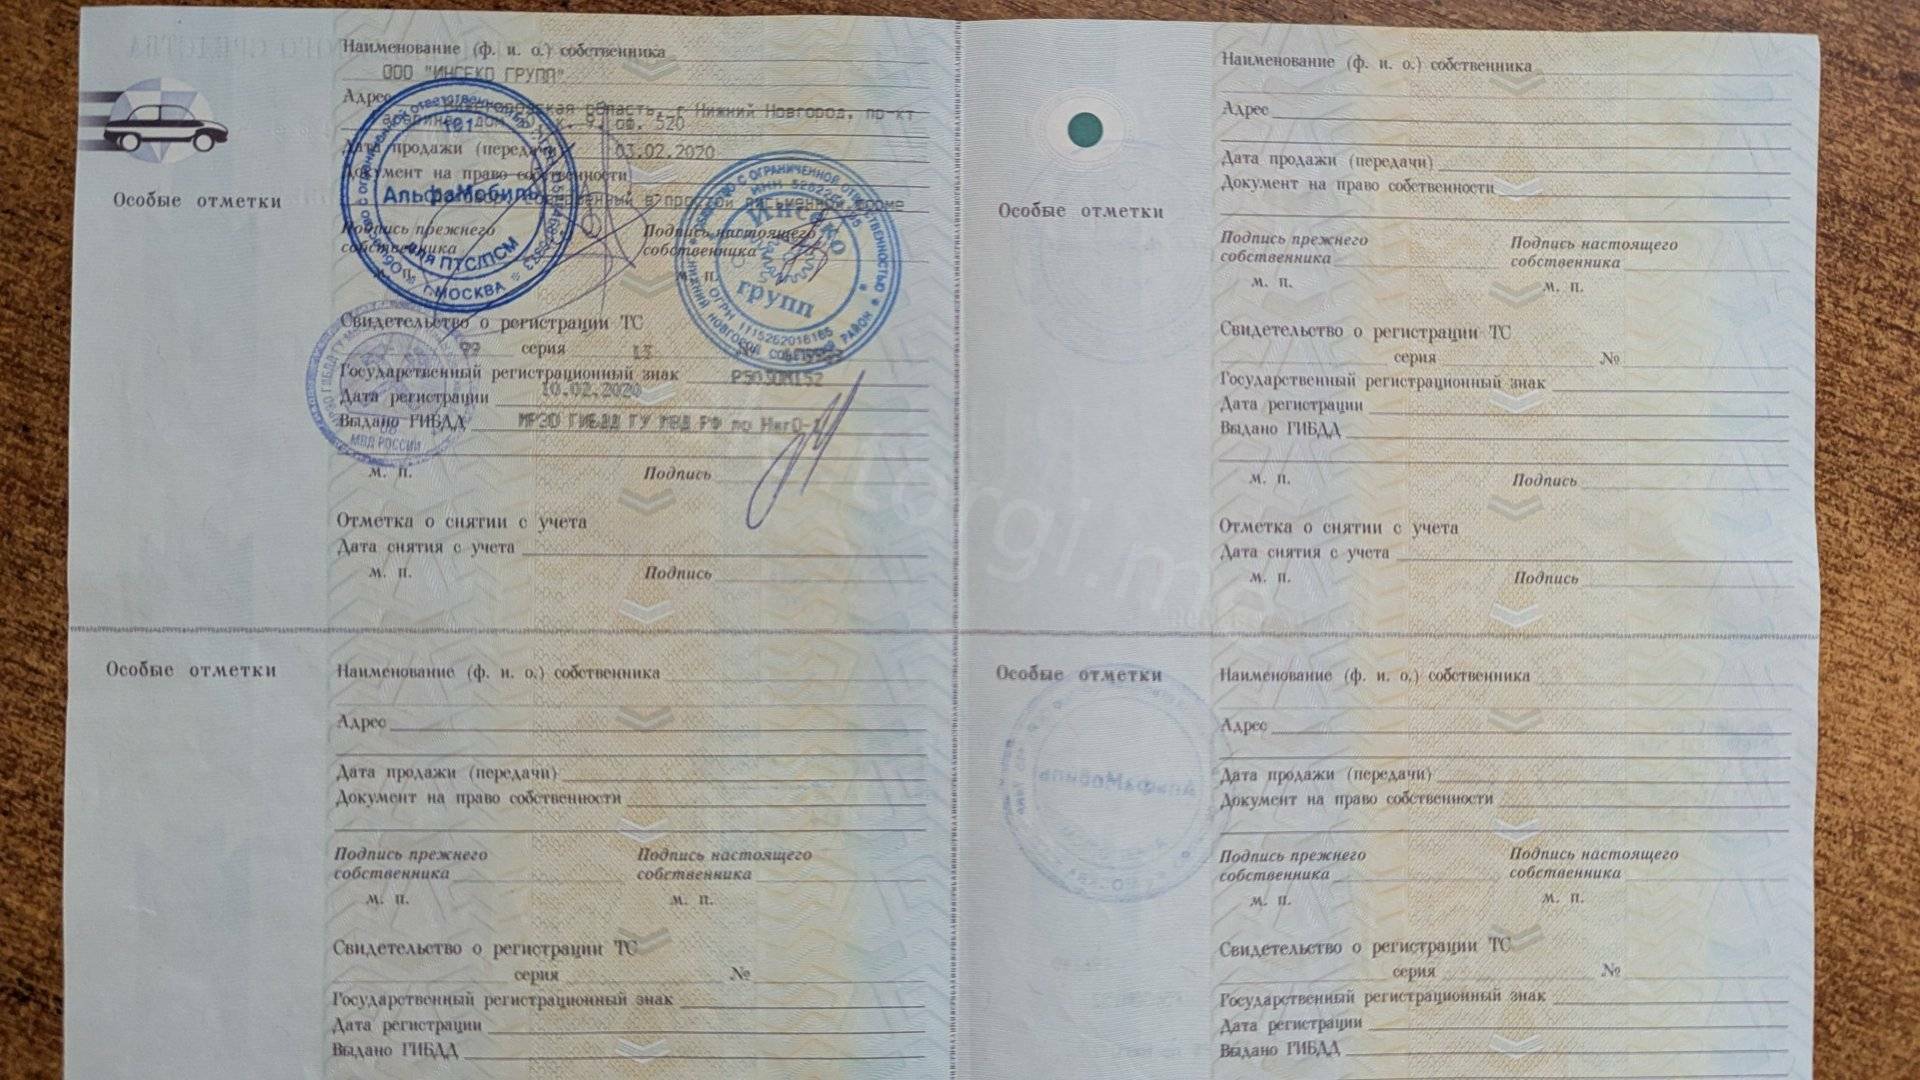 Наименование (ф. и. о.) собственника
ООО "ИНСЕКО ГРУПП"
Адрес
область, г Нижний Новгород, пр-кт
дом оф. 520
Дата продажи (передачи) 03.02.2020
Документ на право собственности
в простой письменной форме
Подпись прежнего собственника
Подпись настоящего собственника
м. п.
АльфаМобиль
для ПТС/ПСМ
г. МОСКВА
Инсеко групп
С ОГРАНИЧЕННОЙ ОТВЕТСТВЕННОСТЬЮ
НИЖНИЙ НОВГОРОД РАЙОН
ОГРН
ИНН
Особые отметки
Свидетельство о регистрации ТС
99 серия 13 №
Государственный регистрационный знак
Дата регистрации 10.02.2020
Выдано ГИБДД МРЭО ГИБДД ГУ МВД РФ по
МВД РОССИИ
м. п. Подпись
Отметка о снятии с учета
Дата снятия с учета
м. п. Подпись
Наименование (ф. и. о.) собственника
Адрес
Дата продажи (передачи)
Документ на право собственности
Особые отметки
Подпись прежнего собственника
Подпись настоящего собственника
м. п. м. п.
Свидетельство о регистрации ТС
серия №
Государственный регистрационный знак
Дата регистрации
Выдано ГИБДД
м. п. Подпись
Отметка о снятии с учета
Дата снятия с учета
м. п. Подпись
torgi.me
Особые отметки
Наименование (ф. и. о.) собственника
Адрес
Дата продажи (передачи)
Документ на право собственности
Подпись прежнего собственника
Подпись настоящего собственника
м. п. м. п.
Свидетельство о регистрации ТС
серия №
Государственный регистрационный знак
Дата регистрации
Выдано ГИБДД
Особые отметки
Наименование (ф. и. о.) собственника
Адрес
Дата продажи (передачи)
Документ на право собственности
Подпись прежнего собственника
Подпись настоящего собственника
м. п. м. п.
Свидетельство о регистрации ТС
серия №
Государственный регистрационный знак
Дата регистрации
Выдано ГИБДД